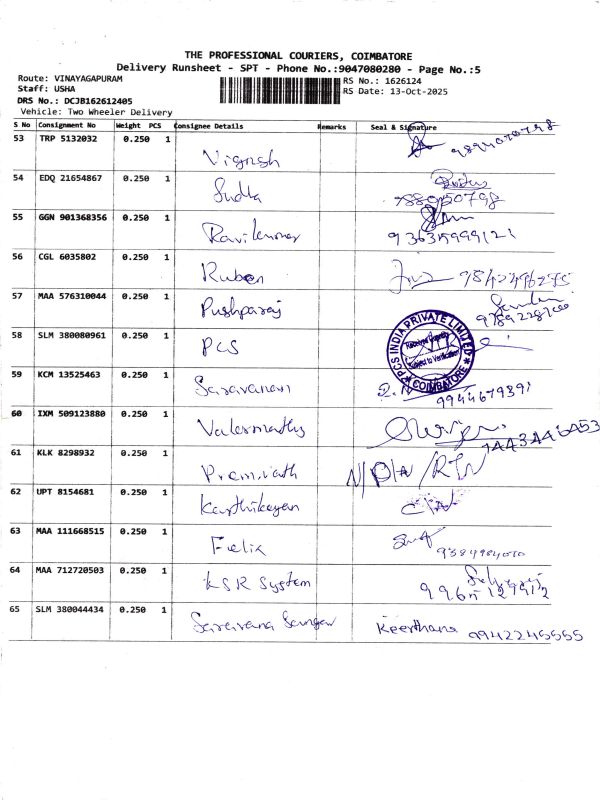 THE PROFESSIONAL COURIERS, COIMBATORE
Delivery Runsheet - SPT - Phone No.:9047080280 - Page No.:5
Route: VINAYAGAPURAM RS No.: 1626124
Staff: USHA RS Date: 13-Oct-2025
DRS No.: DCJB162612405
Vehicle: Two Wheeler Delivery
S No Consignment No Weight PCS Consignee Details Remarks Seal & Signature
53 TRP 5132032 0.250 1 Vignesh
54 EDQ 21654867 0.250 1 Sudha
55 GGN 901368356 0.250 1 Ravikumar
56 CGL 6035802 0.250 1 Ruben
57 MAA 576310044 0.250 1 Pushparaj
58 SLM 380080961 0.250 1 PCS
PCS INDIA PRIVATE LIMITED
Subject to Verification
COIMBATORE
59 KCM 13525463 0.250 1 Saravanan 9944679391
60 IXM 509123880 0.250 1
61 KLK 8298932 0.250 1 Premnath
62 UPT 8154681 0.250 1 Karthikeyan
63 MAA 111668515 0.250 1 Felix
64 MAA 712720503 0.250 1 KSR System
65 SLM 380044434 0.250 1 Keerthana 9942245555